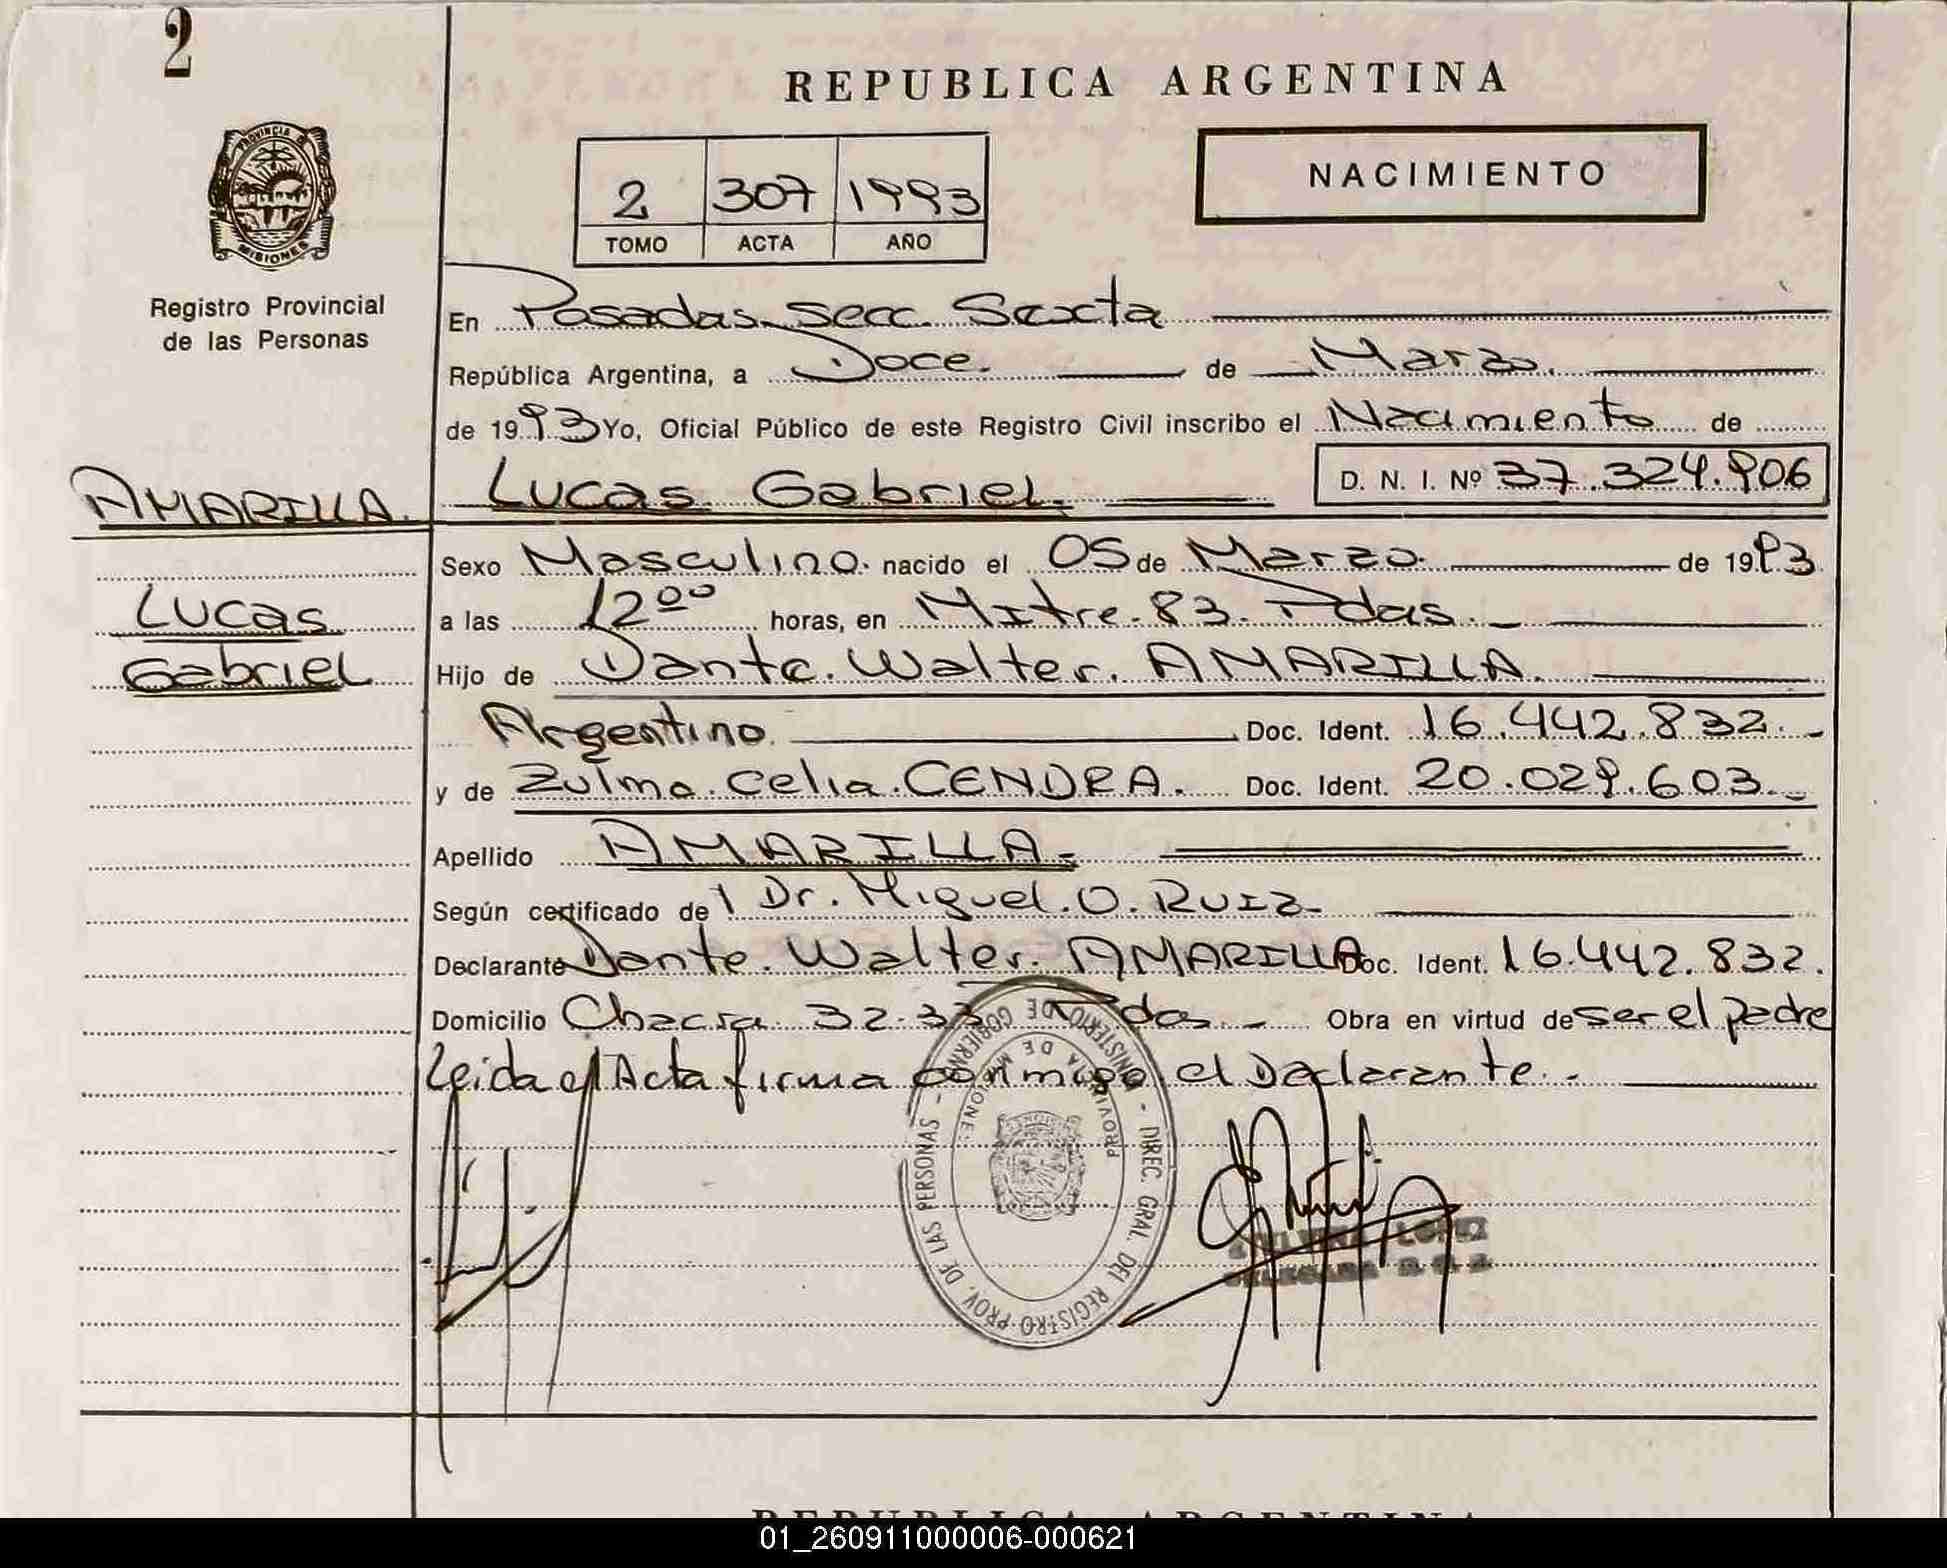 2
REPUBLICA ARGENTINA
NACIMIENTO
2 307 1993
TOMO ACTA AÑO
PROVINCIA DE
MISIONES
Registro Provincial
de las Personas
En Posadas Secc. Sexta
República Argentina, a Doce de Marzo
de 1993 Yo, Oficial Público de este Registro Civil inscribo el Nacimiento de
AMARILLA Lucas Gabriel D. N. I. Nº 37.324.906
Sexo Masculino nacido el 05 de Marzo de 1993
Lucas
a las 12ºº horas, en Mitre 83. Pdas.
Gabriel
Hijo de Dante Walter AMARILLA
Argentino Doc. Ident. 16.442.832.
y de Zulma Celia CENDRA. Doc. Ident. 20.029.603.
Apellido AMARILLA
Según certificado de Dr. Miguel O. Ruiz
Declarante Dante Walter AMARILLA Doc. Ident. 16.442.832.
Domicilio Chacra 32-33 Pdas. Obra en virtud de ser el padre
Leida el Acta firma conmigo el Declarante.
MINISTERIO DE GOBIERNO - DIREC. GRAL. DEL REGISTRO PROV. DE LAS PERSONAS -
PROVINCIA DE MISIONES
LOPEZ
REPUBLICA ARGENTINA
01_260911000006-000621